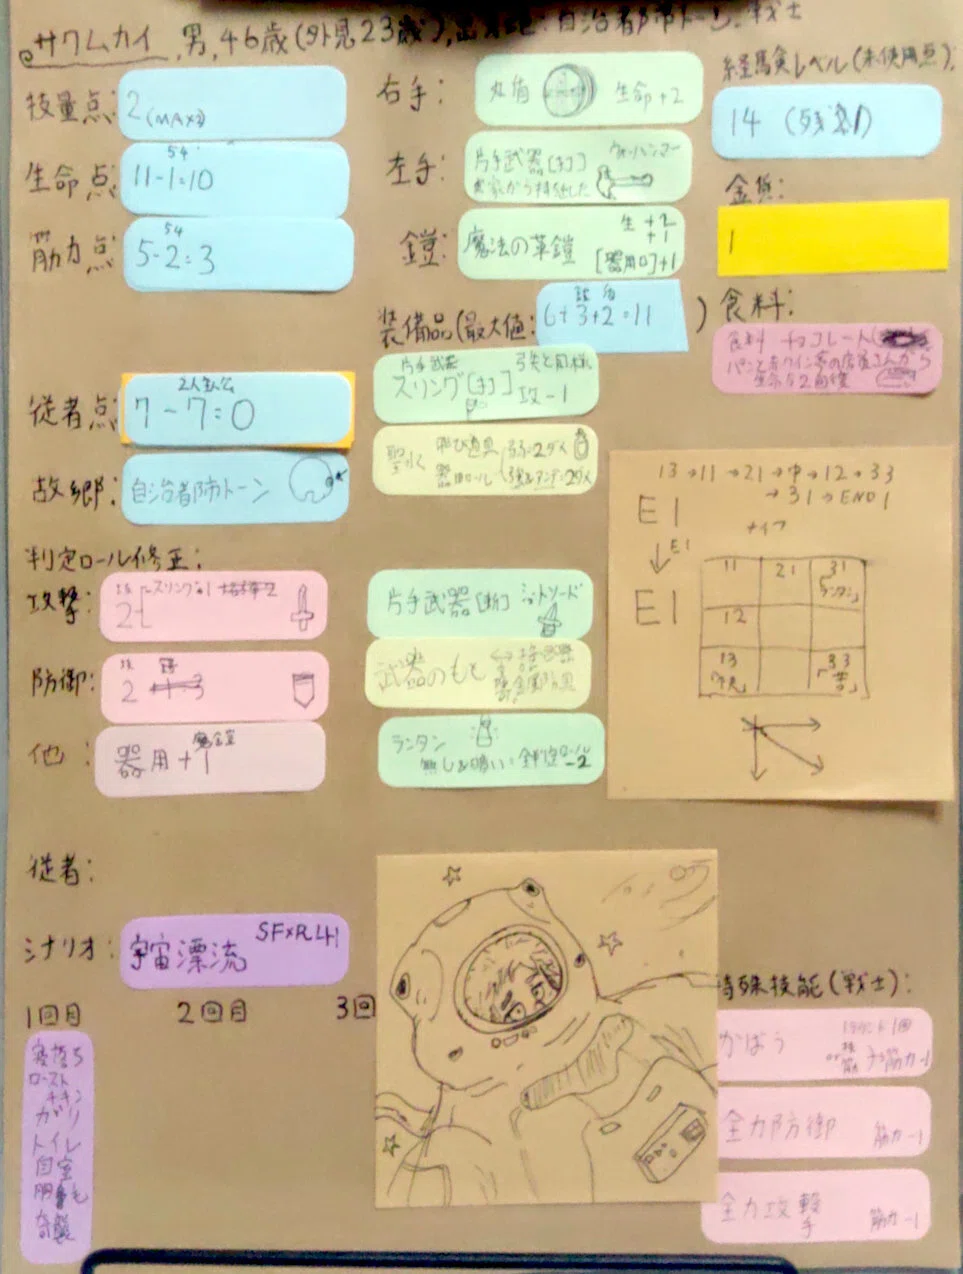 サワムカイ, 男, 46歳(外見23歳), 出身地:自治都市トーン. 戦士
技量点: 2 (MAX2)
生命点: 11-1=10
筋力点: 5-2=3
従者点: 7-7=0
故郷: 自治都市トーン
判定ロール修正:
攻撃: 2 スリング-1
防御: 2
他: 器用+1
従者:
シナリオ: 宇宙漂流
1回目
2回目
3回
寝落ち
ロースト
チキン
ガリ
トイレ
自室
奇襲
右手: 丸盾 生命+2
左手: 片手武器[打] ウォーハンマー
鎧: 魔法の革鎧 生+2 +1
[器用ロ]+1
装備品(最大値: 6+3+2=11 )
片手武器 弓矢と同様
スリング[打] 攻-1
聖水 飛び道具
器用ロール
片手武器[斬] ショートソード
武器のもと
ランタン
無し&暗い:全判定ロール-2
経験食レベル(未使用点):
14 (残り1)
金貨:
1
食料:
食料 チョコレート
パンと赤ワイン亭の店員さんから
13→11→21→中→12→33
→31→END1
E1
↓E1
E1
ナイフ
11 21 31
「ランタン」
12
13 33
特殊技能(戦士):
かばう 1ラウンド1回
筋力-1
全力防御 筋力-1
全力攻撃 筋力-1
手